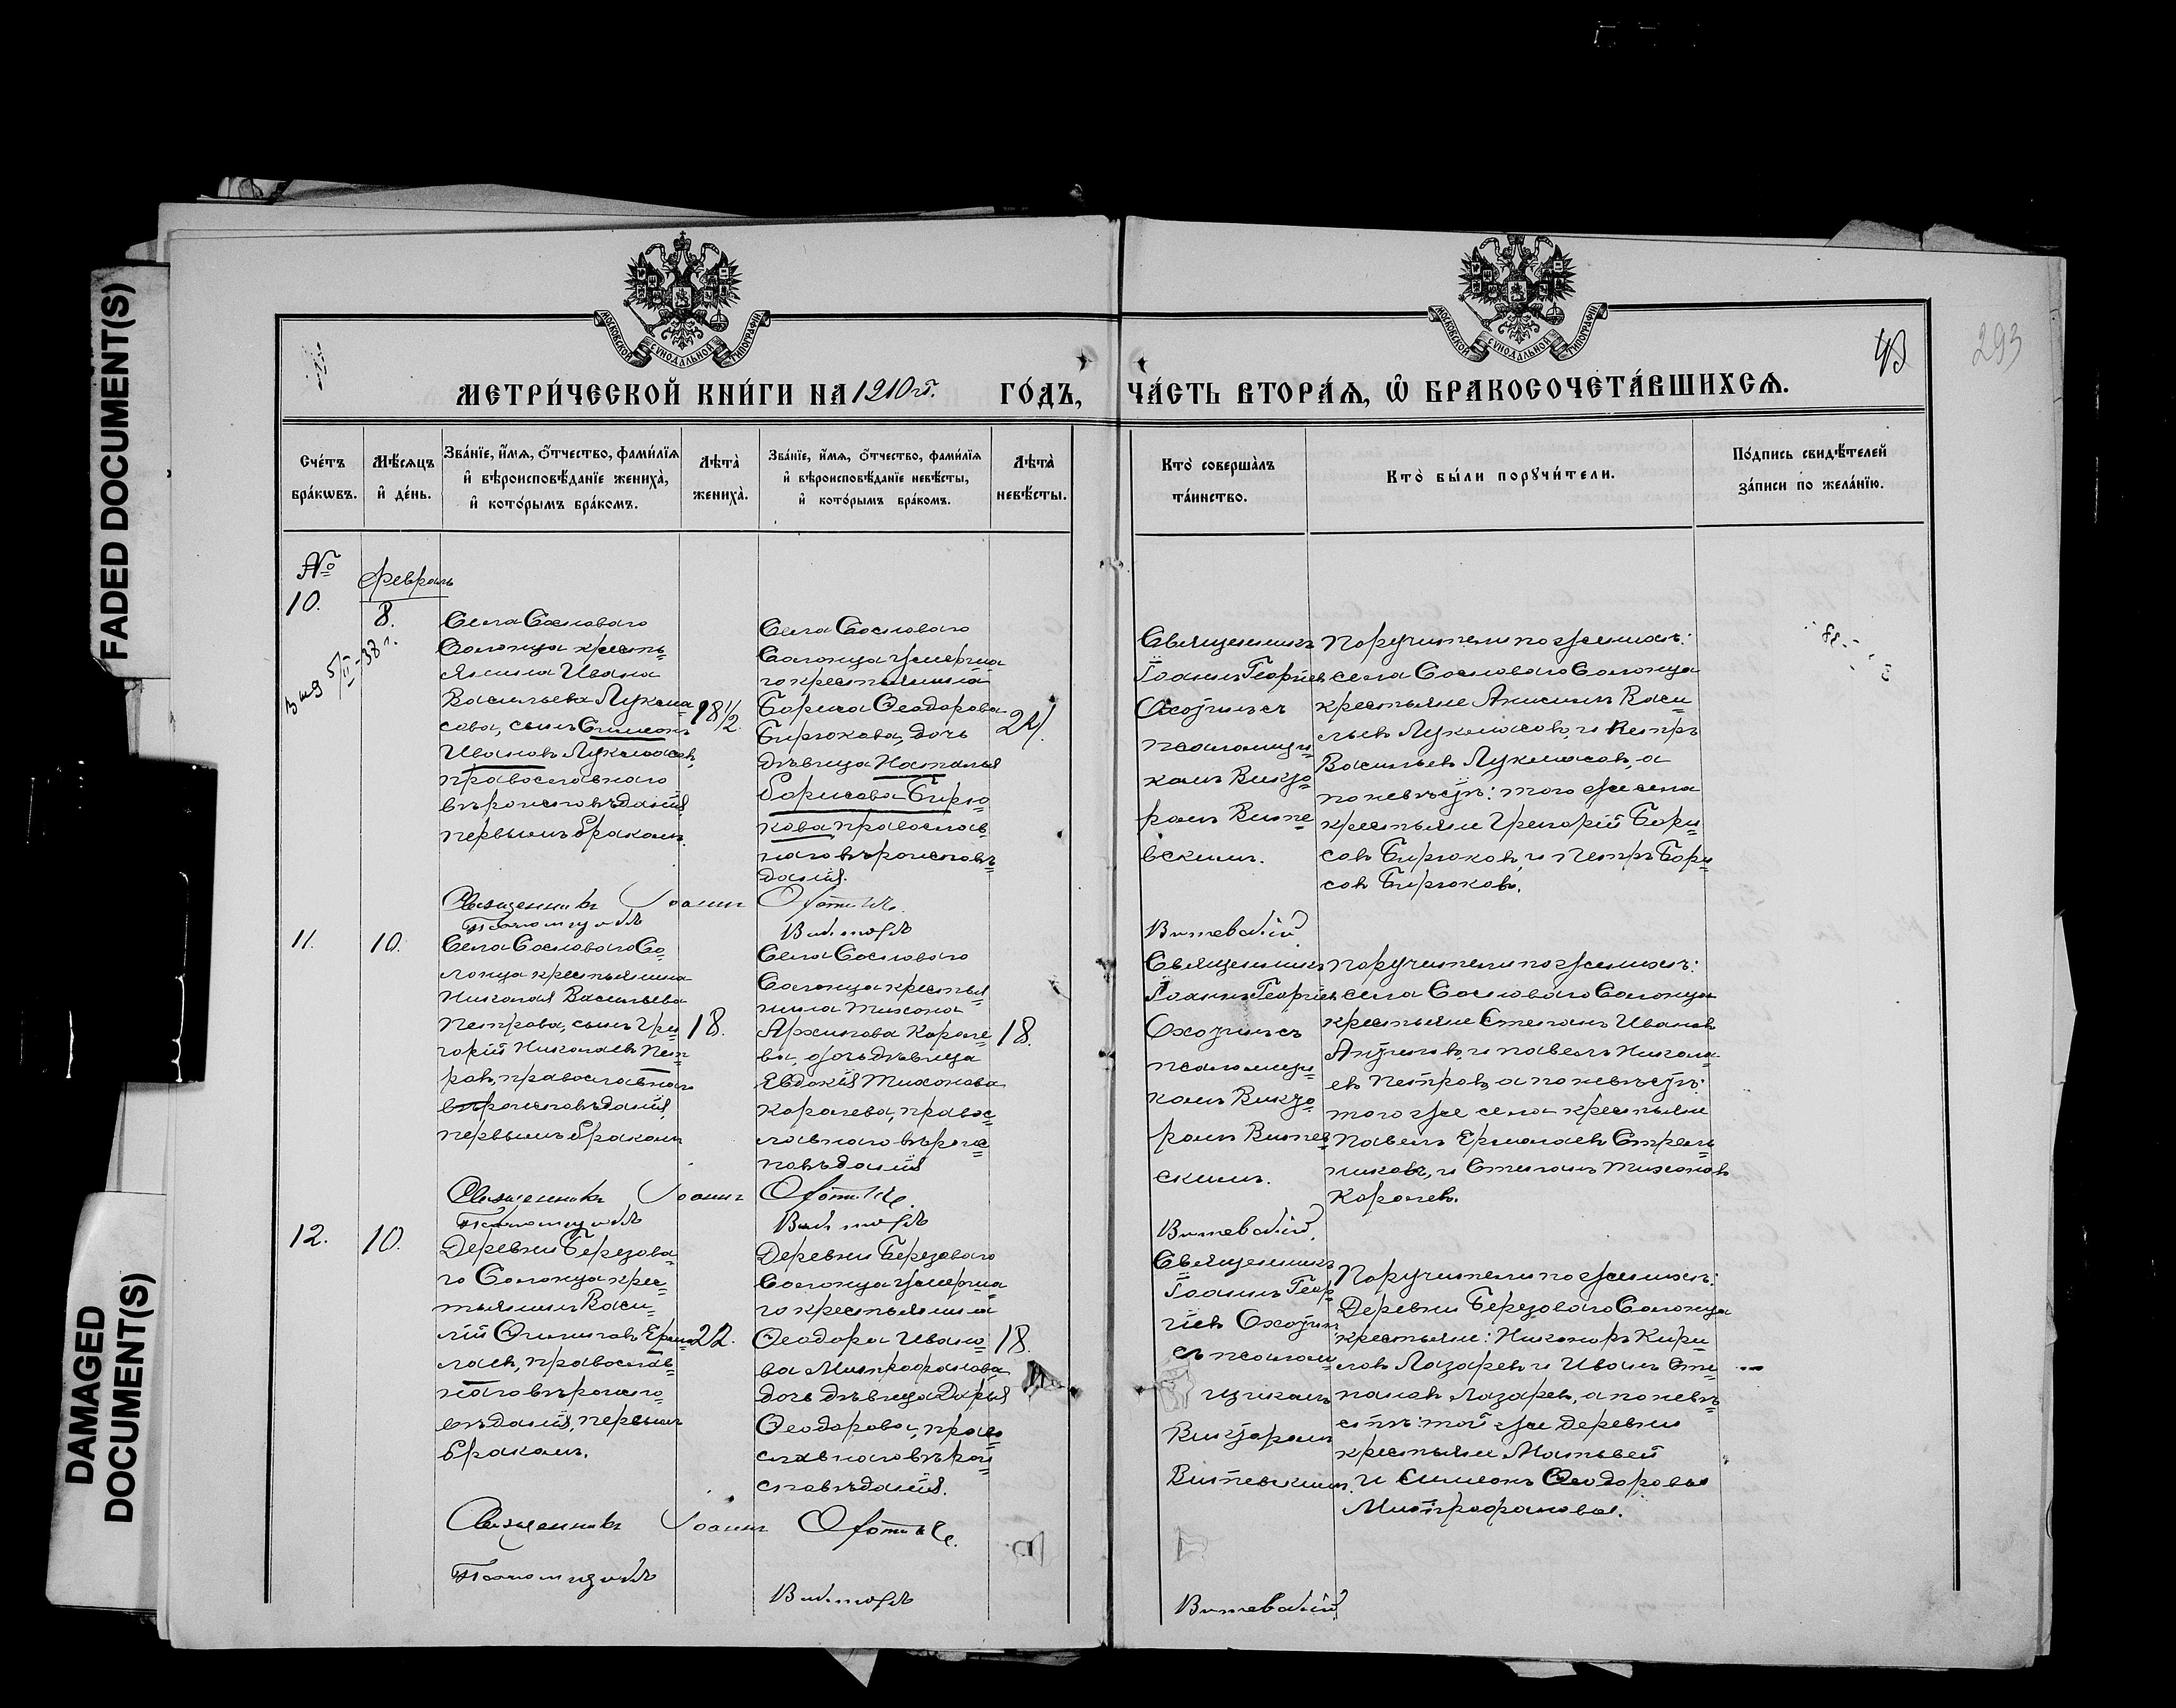 FADED DOCUMENT(S)
DAMAGED
DOCUMENT(S)
МОСКОВСКОЙ СѴНОДАЛЬНОЙ ТИПОГРАФІИ
МОСКОВСКОЙ СѴНОДАЛЬНОЙ ТИПОГРАФІИ
43
293
МЕТРИ́ЧЕСКОЙ КНИ́ГИ НА 1910 г. ГО́ДЪ, ЧА́СТЬ ВТОРА́Ѧ, Ѽ БРАКОСОЧЕТА́ВШИХСѦ.
Сче́тъ
бра́кѡвъ.
Мѣ́сѧцъ
и҆ де́нь.
Зва́нїе, и҆́мѧ, ѻ҆́тчество, фами́лїѧ
и҆ вѣроисповѣ́данїе жениха̀,
и҆ кото́рымъ бра́комъ.
Лѣта̀
жениха̀.
Зва́нїе, и҆́мѧ, ѻ҆́тчество, фами́лїѧ
и҆ вѣроисповѣ́данїе невѣ́сты,
и҆ кото́рымъ бра́комъ.
Лѣта̀
невѣ́сты.
Кто̀ соверша̀лъ
та́инство.
Кто̀ бы́ли порꙋчи́тели.
По́дпись свидѣ́телей
за́писи по жела́нїю.
№
10.
февраль
8.
Села Сосноваго
Солонца кресть=
янина Ивана
Васильева Лукма=
сова, сынъ Симеонъ
Ивановъ Лукмасовъ,
православнаго
вѣроисповѣданія,
первымъ бракомъ.
18 1/2.
Села Сосноваго
Солонца умерша=
го крестьянина
Бориса Ѳеодорова
Бирюкова, дочь
дѣвица Наталья
Борисова Бирю=
кова православ=
наго вѣроисповѣ=
данія.
24.
Священникъ
Іоаннъ Георгіев
Охотинъ съ
псаломщи=
комъ Викто=
ромъ Витe=
вскимъ.
Поручители по женихѣ:
села Сосноваго Солонца
крестьяне Анисимъ Васи=
льевъ Лукмасовъ, и Петръ
Васильевъ Лукмасовъ, а
по невѣстѣ: того же села
крестьяне Григорій Бори=
совъ Бирюковъ, и Петръ Бори=
совъ Бирюковъ.
Священникъ Іоаннъ Охотинъ.
Псаломщикъ Викторъ Витевскій
11.
10.
Села Сосноваго Со=
лонца крестьянина
Николая Васильева
Петрова, сынъ Гри=
горій Николаевъ Пет=
ровъ, православнаго
вѣроисповѣданія,
первымъ бракомъ
18.
Села Сосноваго
Солонца крестья=
нина Тихона
Архипова Короле=
ва, дочь дѣвица
Евдокія Тихонова
Королева, правос=
лавнаго вѣроис=
повѣданія
18.
Священникъ
Іоаннъ Георгіев
Охотинъ съ
псаломщи=
комъ Викто=
ромъ Витев=
скимъ.
Поручители по женихѣ:
села Сосноваго Солонца
крестьяне Степанъ Ивановъ
и Павелъ Никола=
евъ Петровъ а по невѣстѣ:
того же села крестьяне
Павелъ Ермолаевъ Стрель=
никовъ, и Степанъ Тихоновъ
Королевъ.
Священникъ Іоаннъ Охотинъ.
Псаломщикъ Викторъ Витевскій.
12.
10.
Деревни Березова=
го Солонца крес=
тьянинъ Васи=
лій Ермо=
лаевъ, православ=
наго вѣроиспо=
вѣданія, первымъ
бракомъ.
22.
Деревни Березоваго
Солонца умерша=
го крестьянина
Ѳеодора Ивано=
ва Митрофанова
дочь дѣвица Дарья
Ѳеодорова, право=
славнаго вѣрои=
сповѣданія.
18.
Священникъ
Іоаннъ Геор=
гіевъ Охотин
съ псалом=
щикомъ
Викторомъ
Витевскимъ.
Поручители по женихѣ:
Деревни Березоваго Солонца
крестьяне: Никоноръ Кири=
ловъ Лазаревъ и Иванъ Сте=
пановъ Лазаревъ, а по невѣ=
стѣ: той же деревни
крестьяне Матвей
и Симеонъ Ѳеодоровы
Митрофановы.
Священникъ Іоаннъ Охотинъ.
Псаломщикъ Викторъ Витевскій